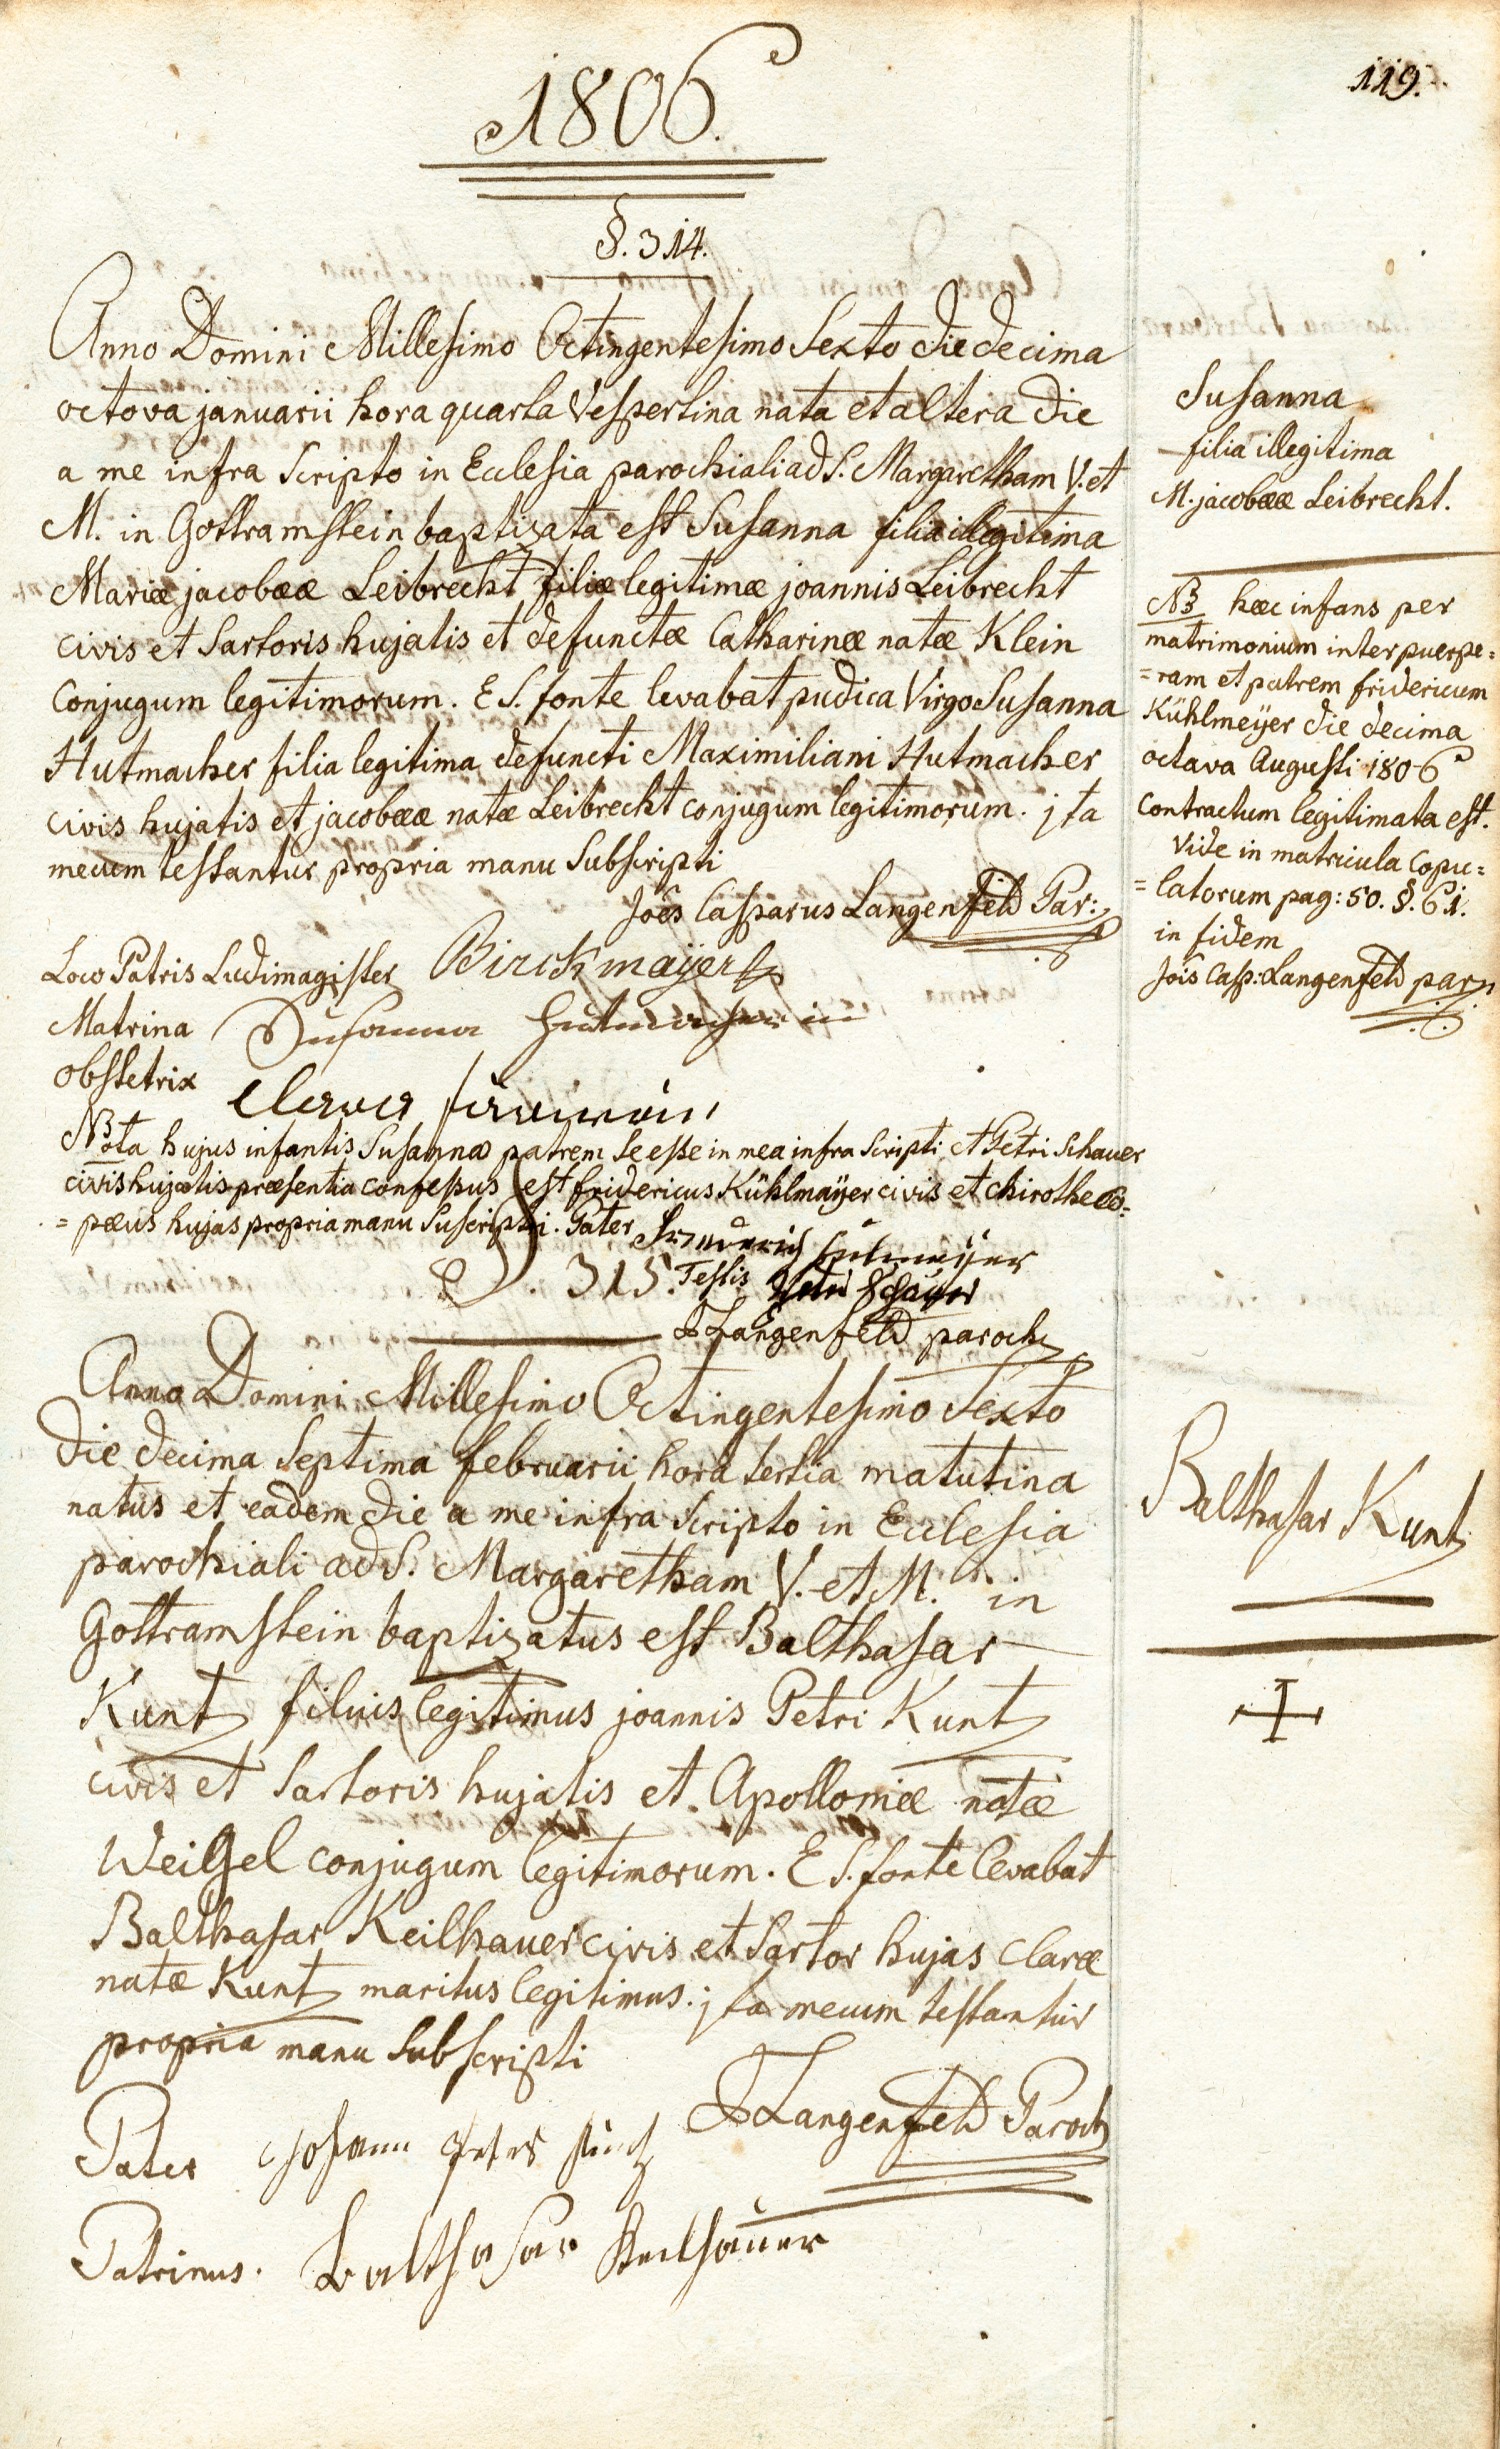 119.
1806.
§. 314.
Anno Domini Millesimo Octingentesimo Sexto die decima
octova januarii hora quarta Vespertina nata et altera die
a me infra Scripto in Ecclesia parochiali ad S. Margaretham V. et
M. in Gottramstein baptizata est Susanna filia illegitima
Mariæ jacobææ Leibrecht filiæ legitimæ joannis Leibrecht
civis et Sartoris hujatis et defunctæ Catharinæ natæ Klein
Conjugum legitimorum. E S. fonte levabat pudica Virgo Susanna
Hutmacher filia legitima defuncti Maximiliani Hutmacher
civis hujatis et jacobææ natæ Leibrecht conjugum legitimorum. jta
mecum testantur propria manu Subscripti
Joes Casparus Langenfeld Par:
Loco Patris Ludimagister Birckmaÿer
Matrina Susanna Hutmacherin
Obstetrix
NB
Nota hujus infantis Susannæ patrem Se esse in mea infra Scripti et Petri Schauer
civis hujatis præsentia confessus est fridericus Kühlmaÿer civis et chirotheco=
=pæus hujas propria manu Suscripti. Pater Friederich Kulmeijer
Testis Peter Schauer
Langenfeld paroch
Susanna
filia illegitima
M. jacobææ Leibrecht.
NB hæc infans per
matrimonium inter puerpe=
=ram et patrem fridericum
Kühlmeÿer die decima
octava Augusti 1806
contractum legitimata est.
Vide in matricula Copu=
=latorum pag: 50. §. 61.
in fidem
Jois Casp: Langenfeld par
§. 315.
Anno Domini Millesimo Octingentesimo Sexto
die decima Septima februarii hora tertia matutina
natus et eadem die a me infra Scripto in Ecclesia
parochiali ad S. Margaretham V. et M. in
Gottramstein baptizatus est Balthasar
Kuntz filius legitimus joannis Petri Kuntz
civis et Sartoris hujatis et Apolloniæ natæ
Weigel conjugum legitimorum. E S. fonte levabat
Balthasar Keilhauer civis et Sartor hujas Claræ
natæ Kuntz maritus legitimus. jta mecum testantur
propria manu Subscripti
Langenfeld Paroch
Pater Johann Peter Kuntz
Patrinus. Balthasar Keilhauer
Balthasar Kuntz